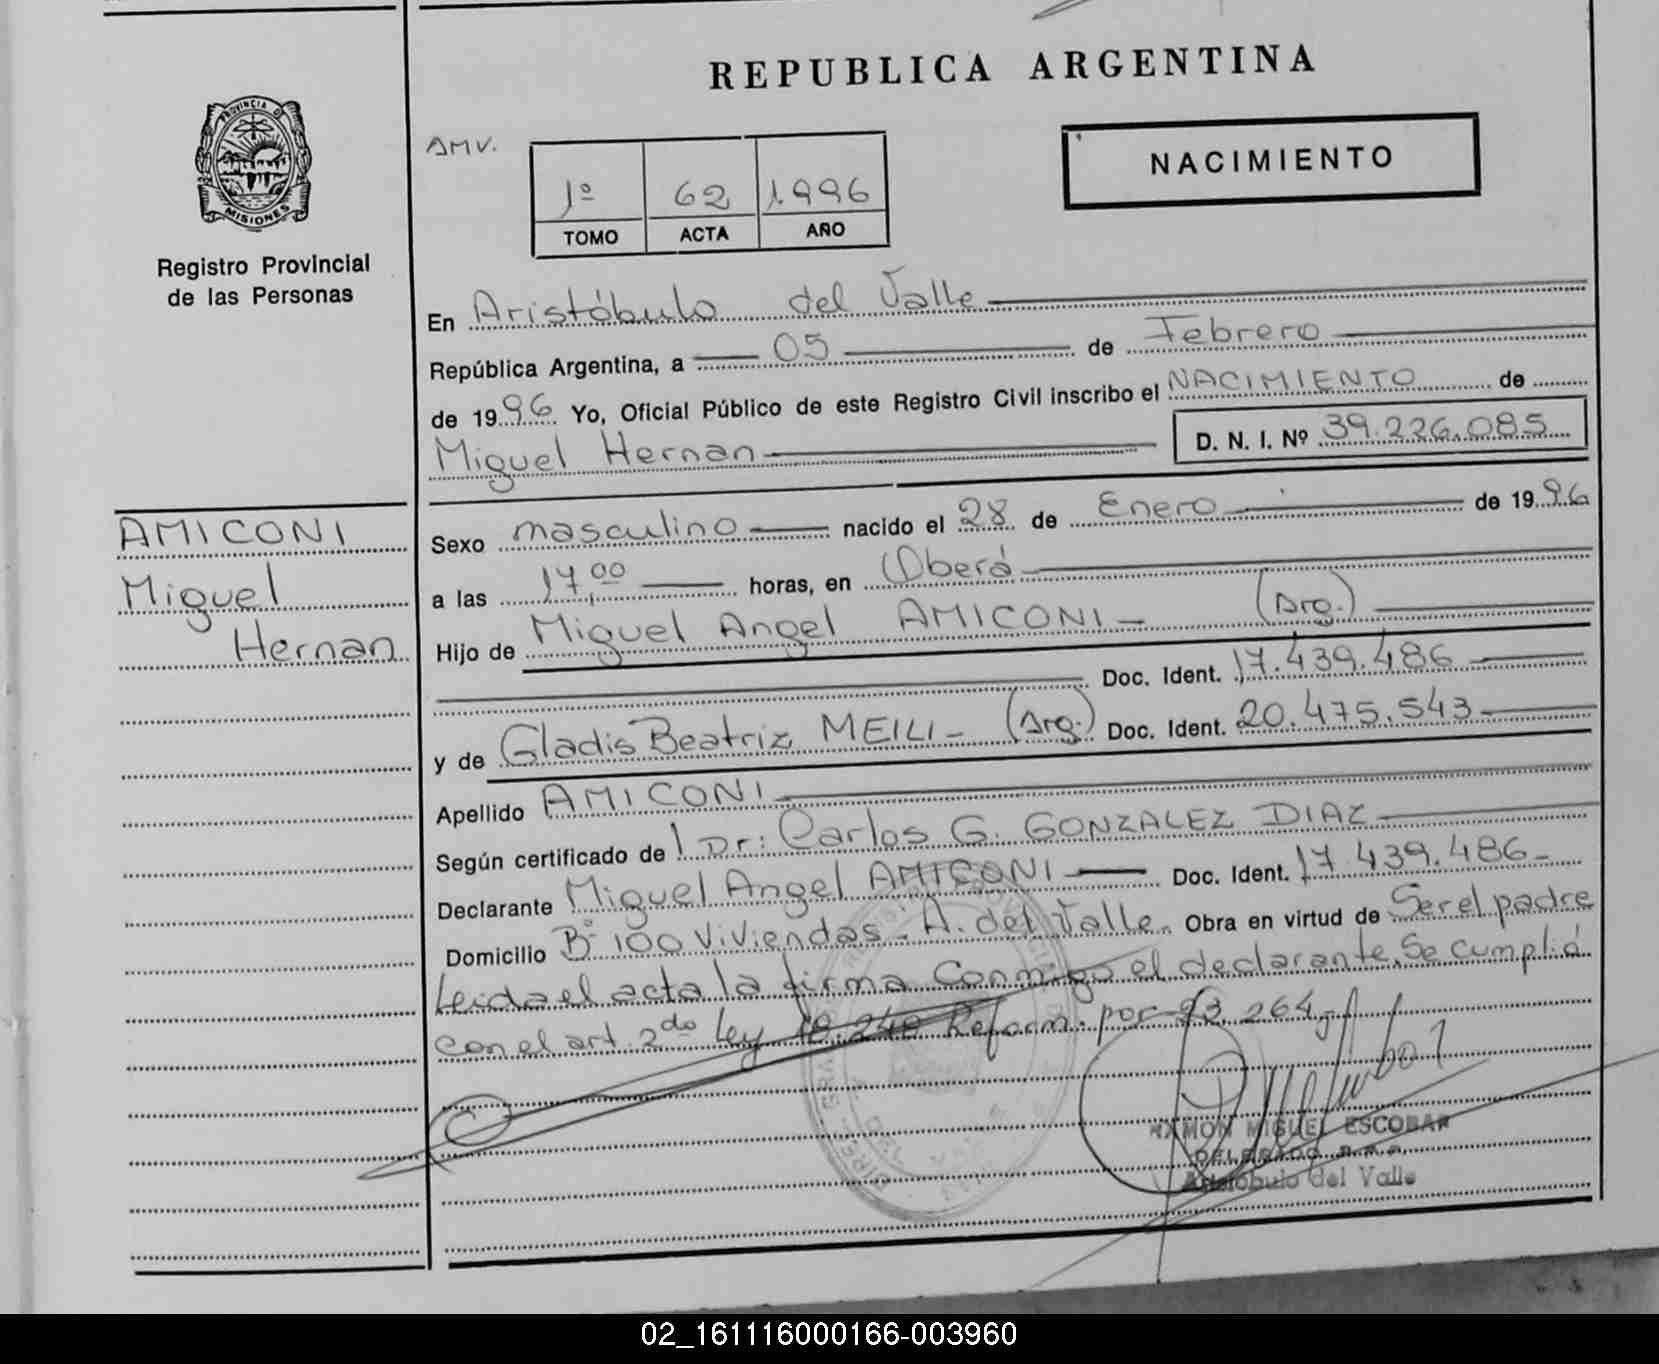 REPUBLICA ARGENTINA
PROVINCIA DE
MISIONES
Registro Provincial
de las Personas
AMV.
1º 62 1.996
TOMO ACTA AÑO
NACIMIENTO
En Aristóbulo del Valle
República Argentina, a 05 de Febrero
de 1996 Yo, Oficial Público de este Registro Civil inscribo el NACIMIENTO de
Miguel Hernan D. N. I. Nº 39.226.085
AMICONI
Miguel
Hernan
Sexo masculino nacido el 28 de Enero de 1996
a las 17,00 horas, en Oberá
Hijo de Miguel Angel AMICONI - (Arg.)
Doc. Ident. 17.439.486
y de Gladis Beatriz MEILI - (Arg.) Doc. Ident. 20.475.543
Apellido AMICONI
Según certificado de Dr: Carlos G. GONZALEZ DIAZ
Declarante Miguel Angel AMICONI Doc. Ident. 17.439.486-
Domicilio Bº 100 Viviendas - A. del Valle. Obra en virtud de Ser el padre
Leida el acta la firma Conmigo el declarante. Se cumplió
con el art. 2do Ley Reform. por 23.264,-
RAMON MIGUEL ESCOBAR
DELEGADO
Aristóbulo del Valle
02_161116000166-003960